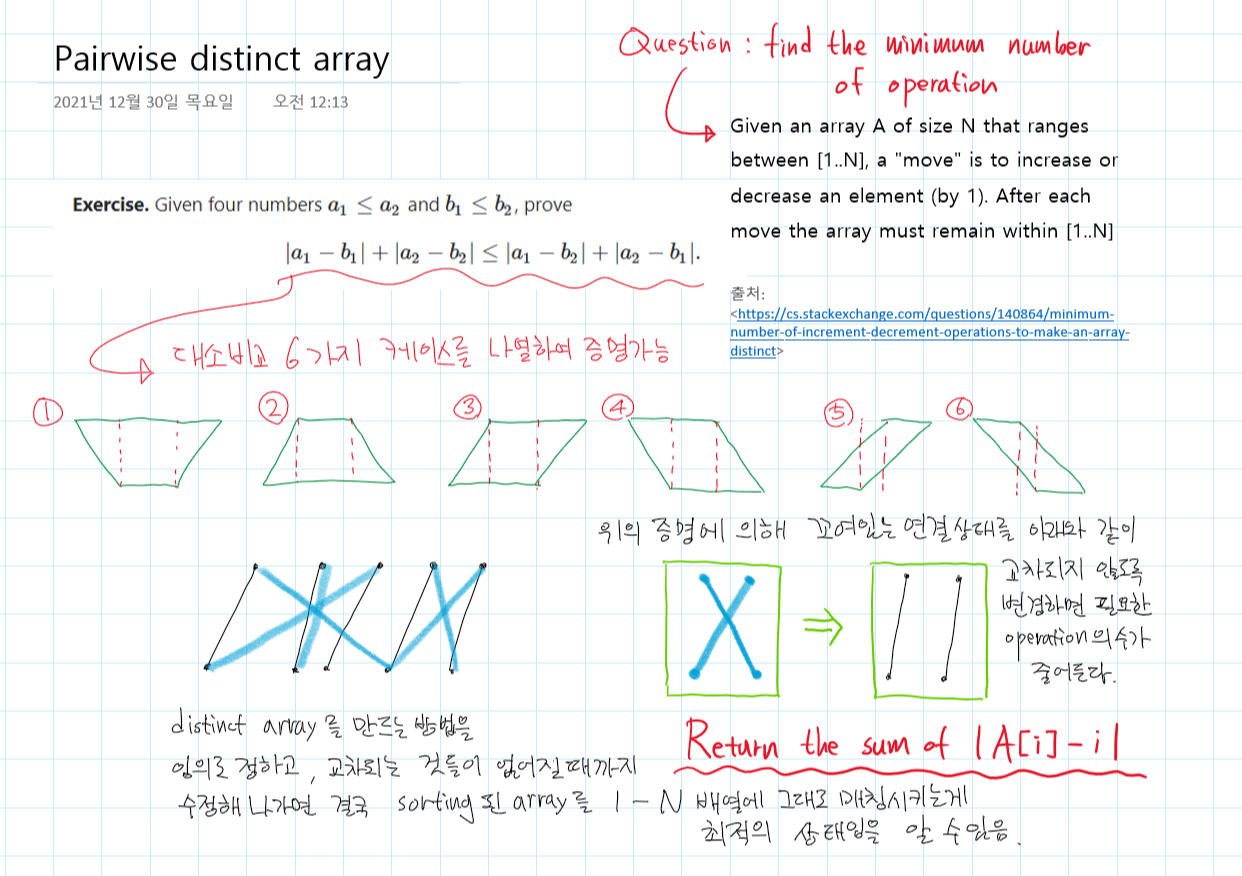 Pairwise distinct array
2021년 12월 30일 목요일 오전 12:13
Question : find the minimum number
of operation
Given an array A of size N that ranges
between [1..N], a "move" is to increase or
decrease an element (by 1). After each
move the array must remain within [1..N]
출처:
<https://cs.stackexchange.com/questions/140864/minimum-
number-of-increment-decrement-operations-to-make-an-array-
distinct>
Exercise. Given four numbers a₁ ≤ a₂ and b₁ ≤ b₂, prove
|a₁ − b₁| + |a₂ − b₂| ≤ |a₁ − b₂| + |a₂ − b₁|.
대소비교 6가지 케이스를 나열하여 증명가능
① ② ③ ④ ⑤ ⑥
위의 증명에 의해 꼬여있는 연결상태를 아래와 같이
교차되지 않도록
변경하면 필요한
operation의 수가
줄어든다.
distinct array를 만드는 방법을
임의로 정하고, 교차되는 것들이 없어질때까지
수정해 나가면 결국 sorting 된 array를 1 - N 배열에 그대로 매칭시키는게
최적의 상태임을 알 수 있음.
Return the sum of |A[i]-i|